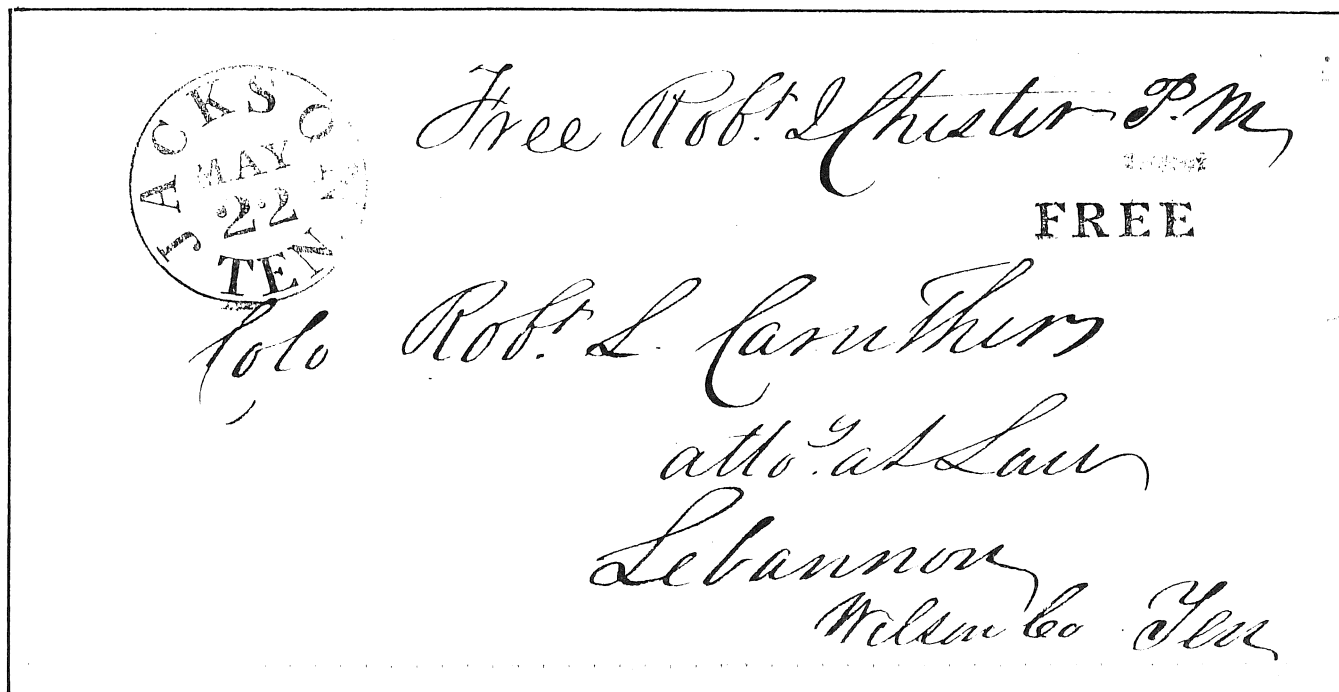 JACKSON
MAY
22
TEN
Free Robt. I Chester P.M
FREE
Colo Robt. L. Caruthers
atto.y at Law
Lebannon
Wilson Co Ten